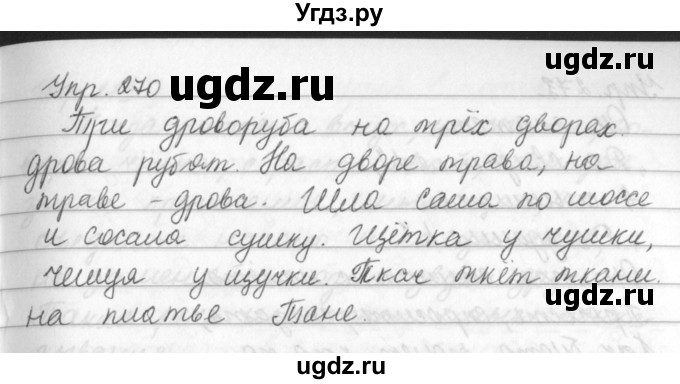 Угдз.ру
Упр. 270
ugdz.ru
ugdz.ru
Три дроворуба на трёх дворах
дрова рубят. На дворе трава, на
траве - дрова. Шла саша по шоссе
ugdz.ru
и сосала сушку. Щётка у чушки,
чешуя у щучки. Ткач ткёт ткани
ugdz.ru
ugdz.ru
на платье Тане.
ugdz.ru